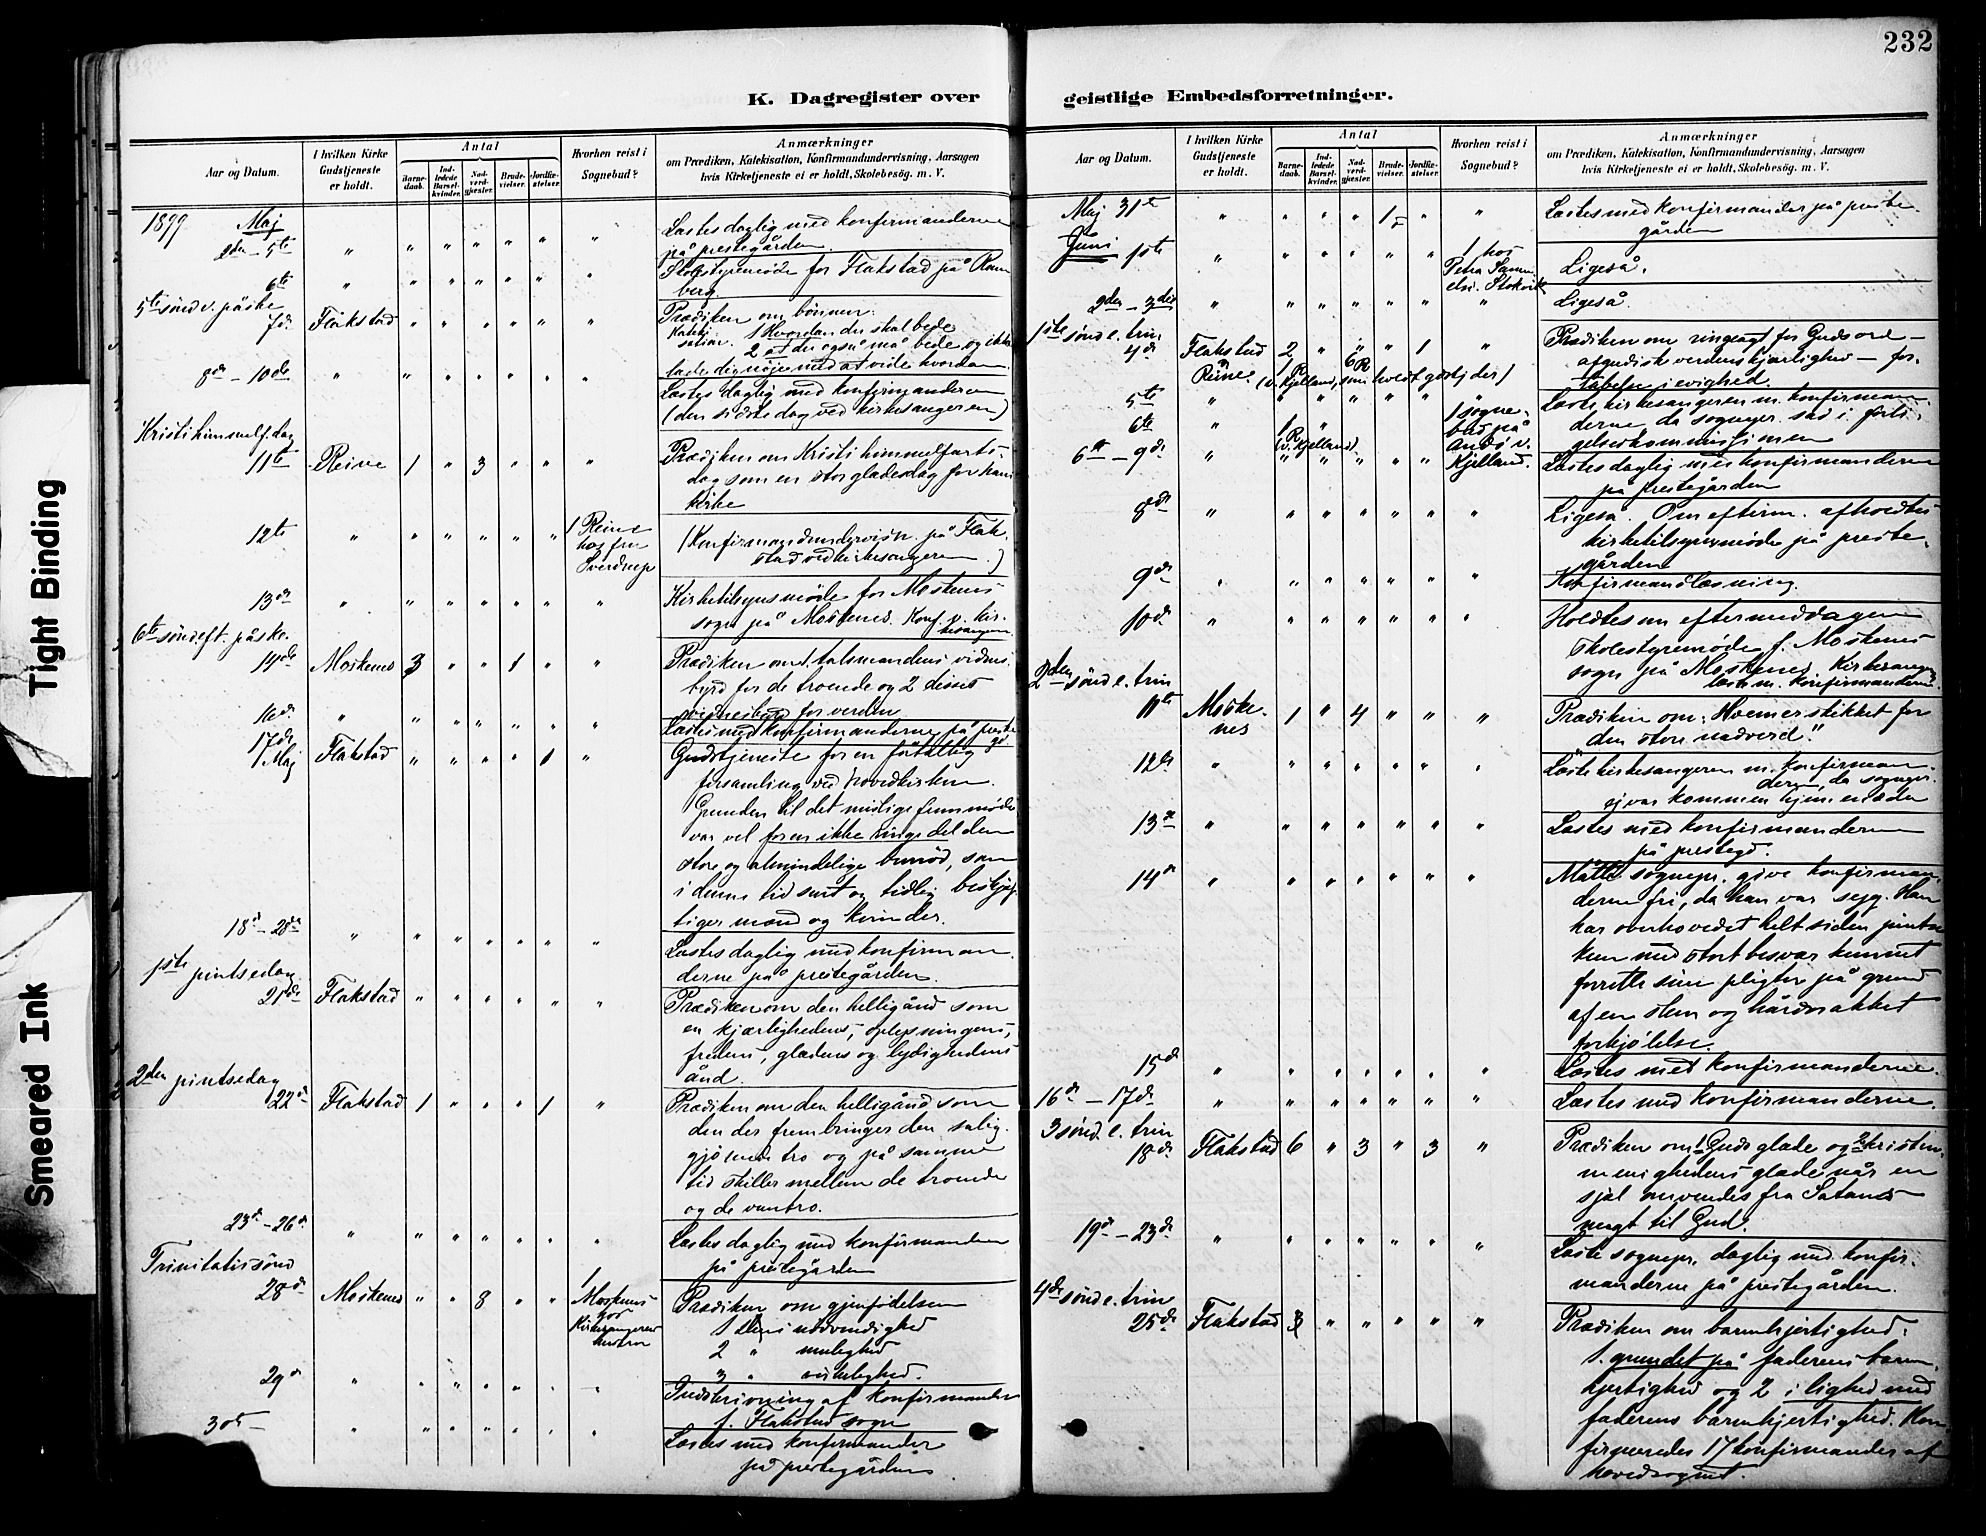 232
K. Dagregister over
geistlige Embedsforretninger.
Aar og Datum.
I hvilken Kirke
Gudstjeneste
er holdt.
Antal
Barne-
daab.
Ind-
ledede
Barsel-
kvinder.
Nad-
verd-
gjæster.
Brude-
vielser.
Jordfæ-
stelser.
Hvorhen reist i
Sognebud?
Anmærkninger
om Prædiken, Katekisation, Konfirmandundervisning, Aarsagen
hvis Kirketjeneste ei er holdt, Skolebesøg. m. V.
1899 Maj
2den - 5te " " " " " " "
Læstes daglig med konfirmanderne
på prestegården.
6te " " " " " " "
Skolestyremøde for Flakstad på Ram
berg.
5te sønd. e. påske
7de Flakstad " " " " " "
Prædiken om bønnen:
Kateki-
sation. 1 Hvordan du skal bede
2 at du også må bede og ikke
lade dig nøje med at vide hvordan.
8de - 10de " " " " " " "
Læstes daglig med konfirmanderne
(den sidste dag ved kirkesangeren)
Kristi himmelf. dag
11te Reine 1 " 3 " " "
Prædiken om Kristi himmelfarts-
dag som en stor glædesdag for hans
kirke
12te " " " " " " 1 Reine
hos fru
Sverdrup
(Konfirmandundervisn. på Flak-
stad ved kirkesangeren.)
13de " " " " " " "
Kirketilsynsmøde for Moskenes
sogn på Moskenes. Konf. v. kir-
kesangeren
6te sønd. eft. påske.
14de Moskenes 3 " " 1 " "
Prædiken om 1. talsmandens vidnes-
byrd for de troende og 2 disses
vidnesbyrd for verden
16de " " " " " " "
Læstes med konfirmanderne på preste
gd
17de
Maj Flakstad " " " " 1 "
Gudstjeneste for en fåtallig
forsamling ved hovedkirken.
Grunden til det ringe fremmøde
var vel for en ikke ringe del den
store og almindelige onnød, som
i denne tid sent og tidlig beskjæf-
tiger mænd og kvinder.
18de - 20de " " " " " " "
Læstes daglig med konfirman
derne på prestegården.
1ste pintsedag
21de Flakstad " " " " " "
Prædiken om den helligånd som
en kjærlighedens, oplysningens,
fredens, glædens og lydighedens
ånd.
2den pintsedag
22de Flakstad 1 " " " 1 "
Prædiken om den helligånd som
den der frembringer den salig-
gjørende tro og på samme
tid skiller mellem de troende
og de vantro.
23de - 26de " " " " " " "
Læstes daglig med konfirmanderne
på prestegården
Trinitatissønd
28de Moskenes " " 8 " " 1
Moskenes
hos
Kirkesangerens
hustru
Prædiken om gjenfødelsen
1 Dens nødvendighed
2 " mulighed
3 " virkelighed.
29de " " " " " " "
Indskrivning af konfirmander
f. Flakstad sogn
30te " " " " " " "
Læstes med konfirmander
på prestegården
Aar og Datum.
I hvilken Kirke
Gudstjeneste
er holdt.
Antal
Barne-
daab.
Ind-
ledede
Barsel-
kvinder.
Nad-
verd-
gjæster.
Brude-
vielser.
Jordfæ-
stelser.
Hvorhen reist i
Sognebud?
Anmærkninger
om Prædiken, Katekisation, Konfirmandundervisning, Aarsagen
hvis Kirketjeneste ei er holdt, Skolebesøg. m. V.
Maj 31te " " " " 1 " "
Læstes med konfirmander på preste-
gården
Juni 1ste " " " " " " 1 hos
Petra Samu
elsd. Stokvik
Ligeså.
2den - 3die " " " " " " "
Ligeså.
1ste sønd e. trin.
4de Flakstad 2 " " " 1 "
Reine 1 R 6 R
(v. Kjelland, som holdt gdstj der)
Prædiken om ringeagt for Guds ord -
afgudisk verdens kjærlighed - for-
tabelse i evighed.
5te " " " " " " "
Læste kirkesangeren m. konfirman-
derne da sognepr. sad i forli-
gelseskommissionen
6te " 1 R "
(v. Kjelland)
1 sogne-
bud på
Andø v.
Kjelland.
6te - 9de " " " " " "
Læstes daglig med konfirmanderne
på prestegården
8de " " " " " " "
Ligeså. Om efterm. afholdtes
kirketilsynsmøde på preste-
gården
9de " " " " " " "
Konfirmandlæsning.
10de " " " " " " "
Holdtes om eftermiddagen
skolestyremøde f. Moskenes
sogn på Moskenes. Kirkesangeren
læste m. konfirmanderne.
2den sønd e. trin
11te Moske-
nes 1 " 4 " " "
Prædiken om: Hvem er stikket for
den store nadverd".
12te " " " " " " "
Læste kirkesangeren m. konfirman-
derne, da sognepr.
ej var kommen hjem endda
13de " " " " " " "
Læstes med konfirmanderne
på prestegd.
14de " " " " " " "
Måtte sognepr. give konfirman-
derne fri, da han var syg. Han
har overhovedet helt siden pintse
kun med stort besvær kunnet
forrette sine pligter på grund
af en slem og hårdnakket
forkjølelse.
15de " " " " " " "
Læstes med konfirmanderne.
16de - 17de " " " " " " "
Læstes med konfirmanderne.
3 sønd. e. trin
18de Flakstad 6 " 3 " 3 "
Prædiken om 1 Guds glæde og 2 kristen-
menighedens glæde når en
sjæl omvendes fra Satans
magt til Gud.
19de - 23de " " " " " " "
Læste sognepr. daglig med konfir-
manderne på prestegården.
4de sønd e. trin
25de Flakstad 3 " " " " "
Prædiken om barmhjertighed:
1. grundet på faderens barm-
hjertighed og 2 i lighed med
faderens barmhjertighed. Kon
firmeredes 17 konfirmander af
hovedsognet.
Tight Binding
Smeared Ink